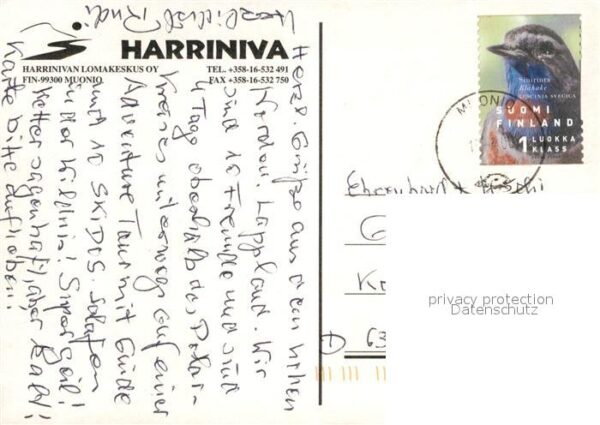 HARRINIVA
HARRINIVAN LOMAKESKUS OY
FIN-99300 MUONIO
TEL. +358-16-532 491
FAX +358-16-532 750
Herzl. Grüße aus dem hohen
Norden. Lappland. Wir
sind 10 Freunde und sind
4 Tage oberhalb des Polar-
kreises unterwegs auf einer
Adventure Tour mit Guide
und 10 SKIDOS. Schlafen
in der Wildnis! Super geil!
Wetter sagenhaft, aber kalt!
Karte bitte aufheben!
Herzlichst Rudi
Sinirinta
Blåhake
LUSCINIA SVECICA
SUOMI
FINLAND
1 LUOKKA
KLASS
MUONIO
G
K
D 63
privacy protection
Datenschutz